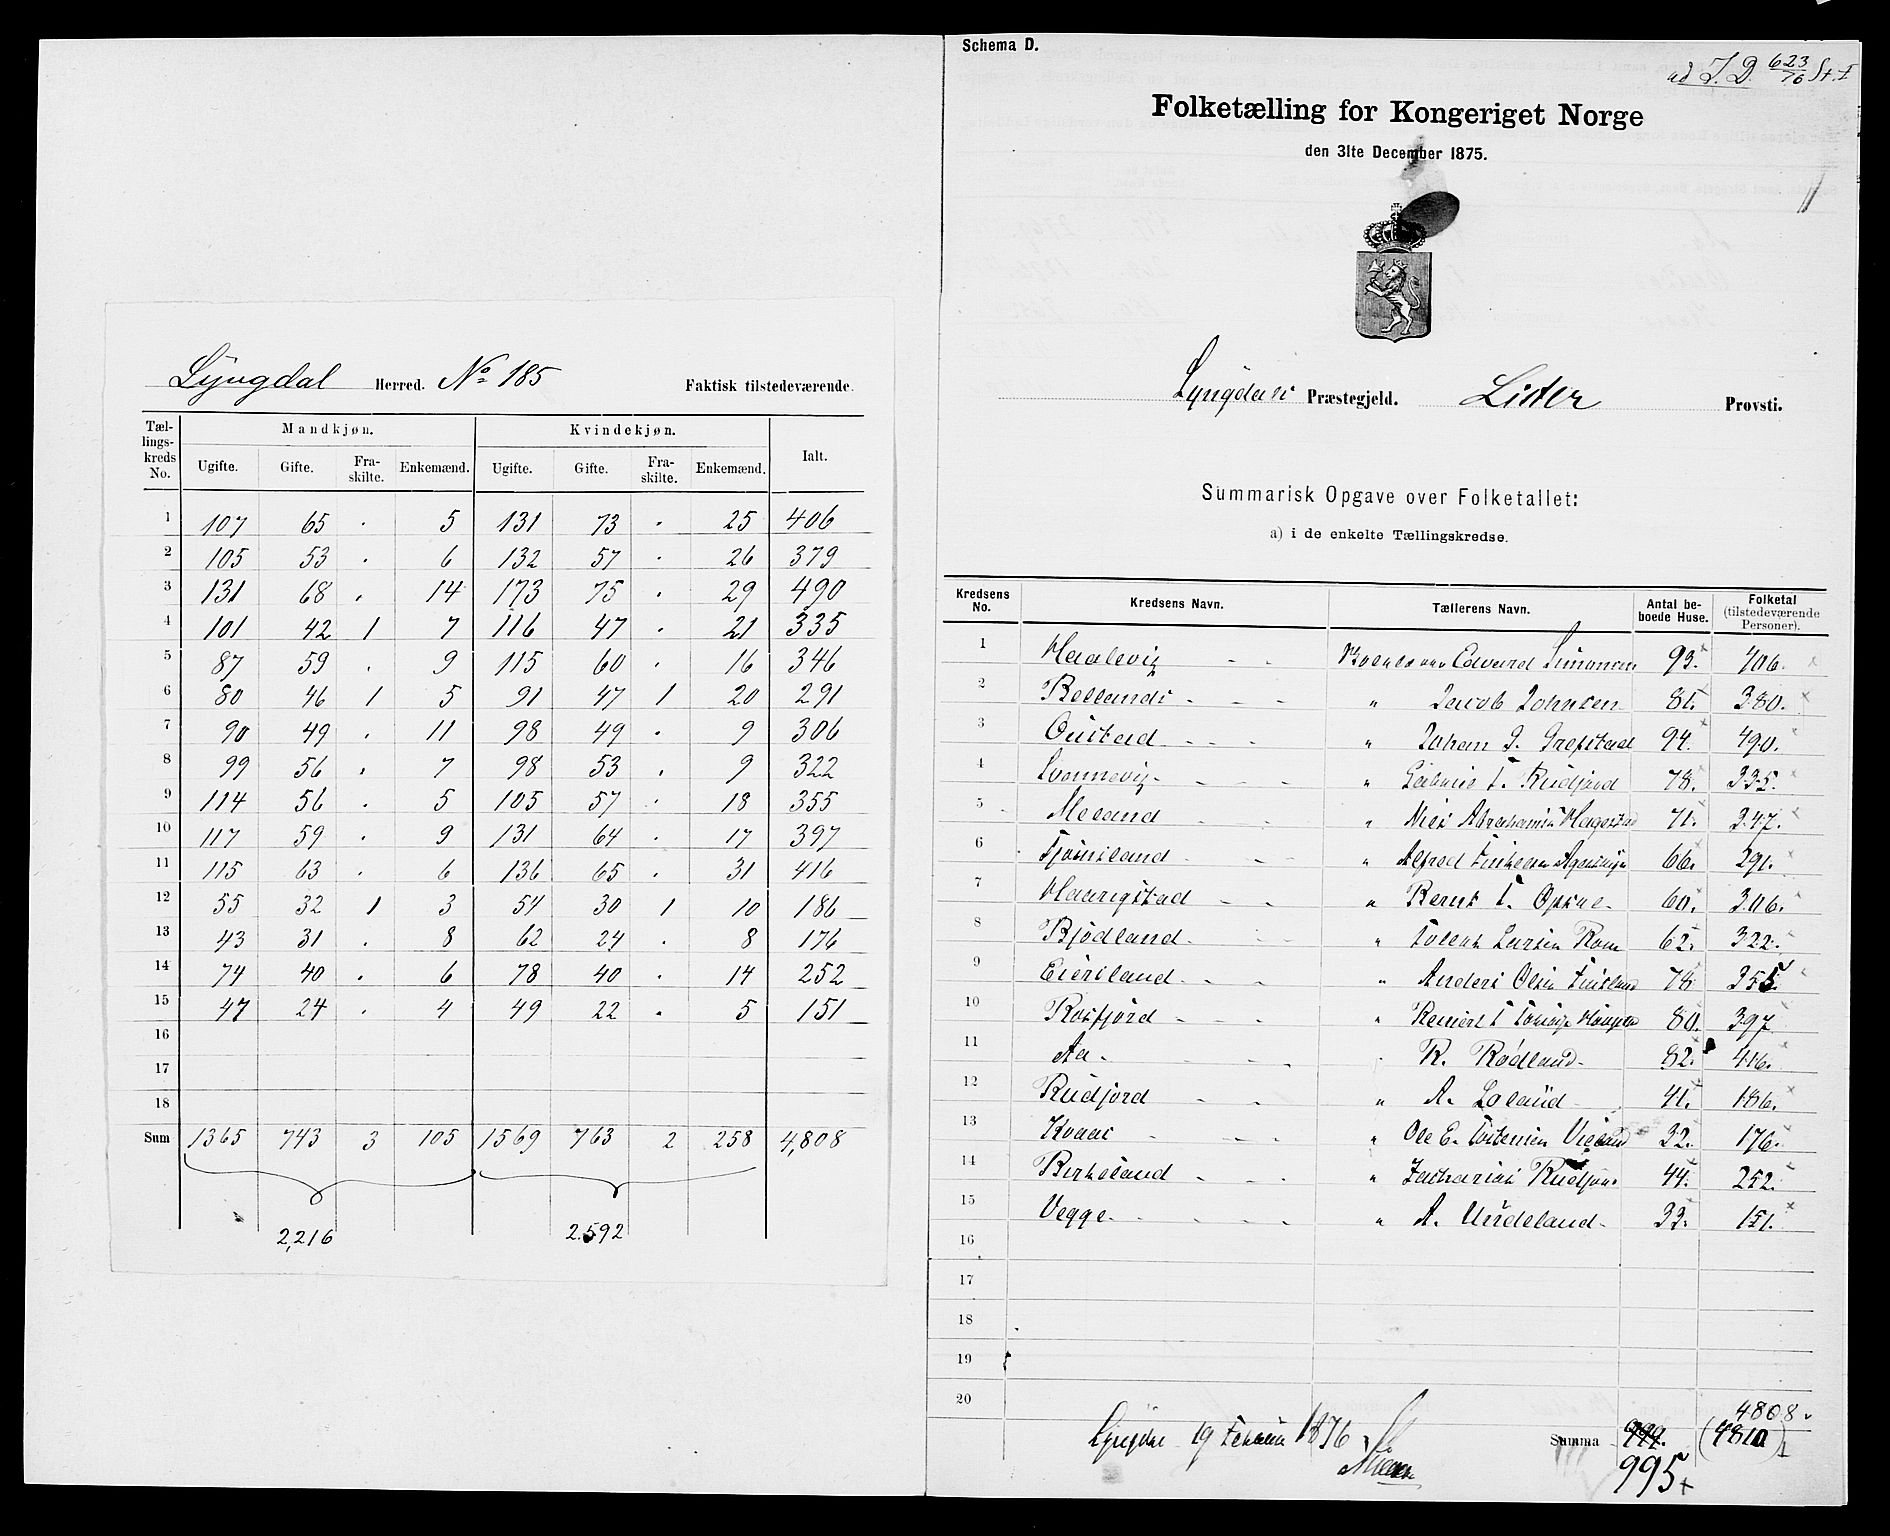 Lyngdal Herred. No 185 Faktisk tilstedeværende.
Tællingskreds No. Mandkjøn. Kvindekjøn. Ialt.
Ugifte. Gifte. Fraskilte. Enkemænd. Ugifte. Gifte. Fraskilte. Enkemænd.
1 107 65 . 5 131 73 . 25 406
2 105 53 . 6 132 57 . 26 379
3 131 68 . 14 173 75 . 29 490
4 101 42 1 7 116 47 . 21 335
5 87 59 . 9 115 60 . 16 346
6 80 46 1 5 91 47 1 20 291
7 90 49 . 11 98 49 . 9 306
8 99 56 . 7 98 53 . 9 322
9 114 56 . 5 105 57 . 18 355
10 117 59 . 9 131 64 . 17 397
11 115 63 . 6 136 65 . 31 416
12 55 32 1 3 54 30 1 10 186
13 43 31 . 8 62 24 . 8 176
14 74 40 . 6 78 40 . 14 252
15 47 24 . 4 49 22 . 5 151
16
17
18
Sum 1365 743 3 105 1569 763 2 258 4,808
2,216 2.592
Schema D.
ad J. D. 623/76 St. I
Folketælling for Kongeriget Norge
den 31te December 1875.
Lyngdals Præstegjeld. Lister Provsti.
Summarisk Opgave over Folketallet:
a) i de enkelte Tællingskredse.
Kredsens No. Kredsens Navn. Tællerens Navn. Antal beboede Huse. Folketal (tilstedeværende Personer).
1 Haalevig - - Edvard Simonsen 93. 406.
2 Bellands - - - " Jacob Johnsen 81. 380.
3 Oustad - - - " Johan G. Grefstad 94. 490.
4 Svennevig - - - " T. Rudjord 78. 335.
5 Meland - - - " Niels Abrahamsen Hagestad 71. 347.
6 Fjøirsland - - - " Alfred 66. 291.
7 Haarigstad - - " Bernt T. Opsal - 60. 306.
8 Bjødland. - - " Tollak Larsen Rom 62. 322.
9 Eiersland - - - " Anders Olsen 78 355.
10 Rosfjord - - - " 80. 397
11 Aa. - - - R. Rødland - 82. 416.
12 Rudjord - - " A. Loland 41. 186.
13 Kvaas - - - " Ole E. 32. 176.
14 Birkeland - - - " Zacharias Rudjord 44. 252.
15 Vegge - - - - " A. Undeland - 33. 151.
16
17
18
19
20
4808.
Lyngdal 19 Februar 1876 Summa 999. (4810)
995